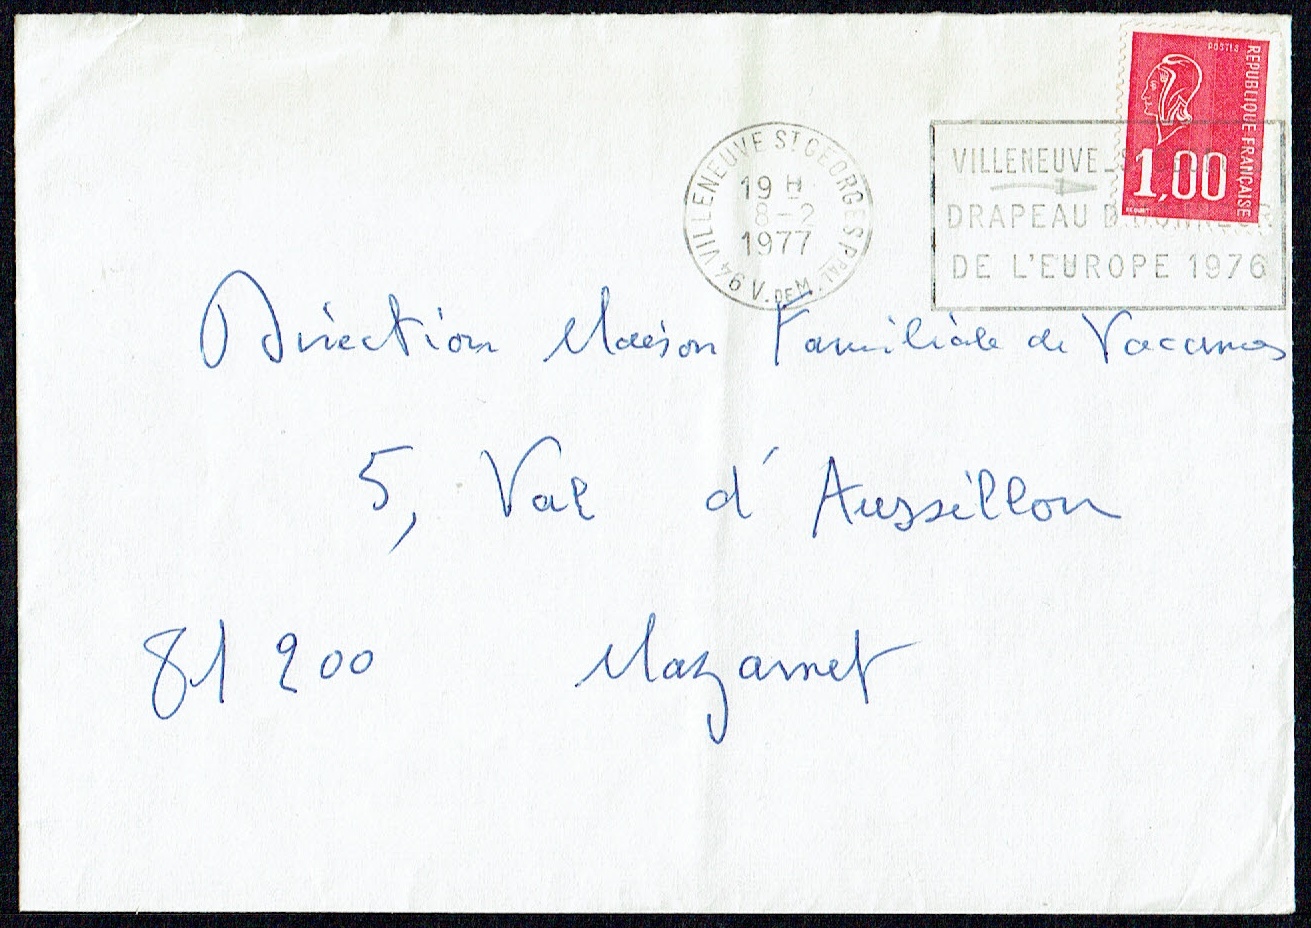 POSTES
REPUBLIQUE FRANCAISE
1,00
94 VILLENEUVE ST GEORGES PPAL
19 H
8-2
1977
V. DE M.
VILLENEUVE
DRAPEAU D'
DE L'EUROPE 1976
Direction Maison Familiale de Vacances
5, Val d'Aussillon
81200 Mazamet